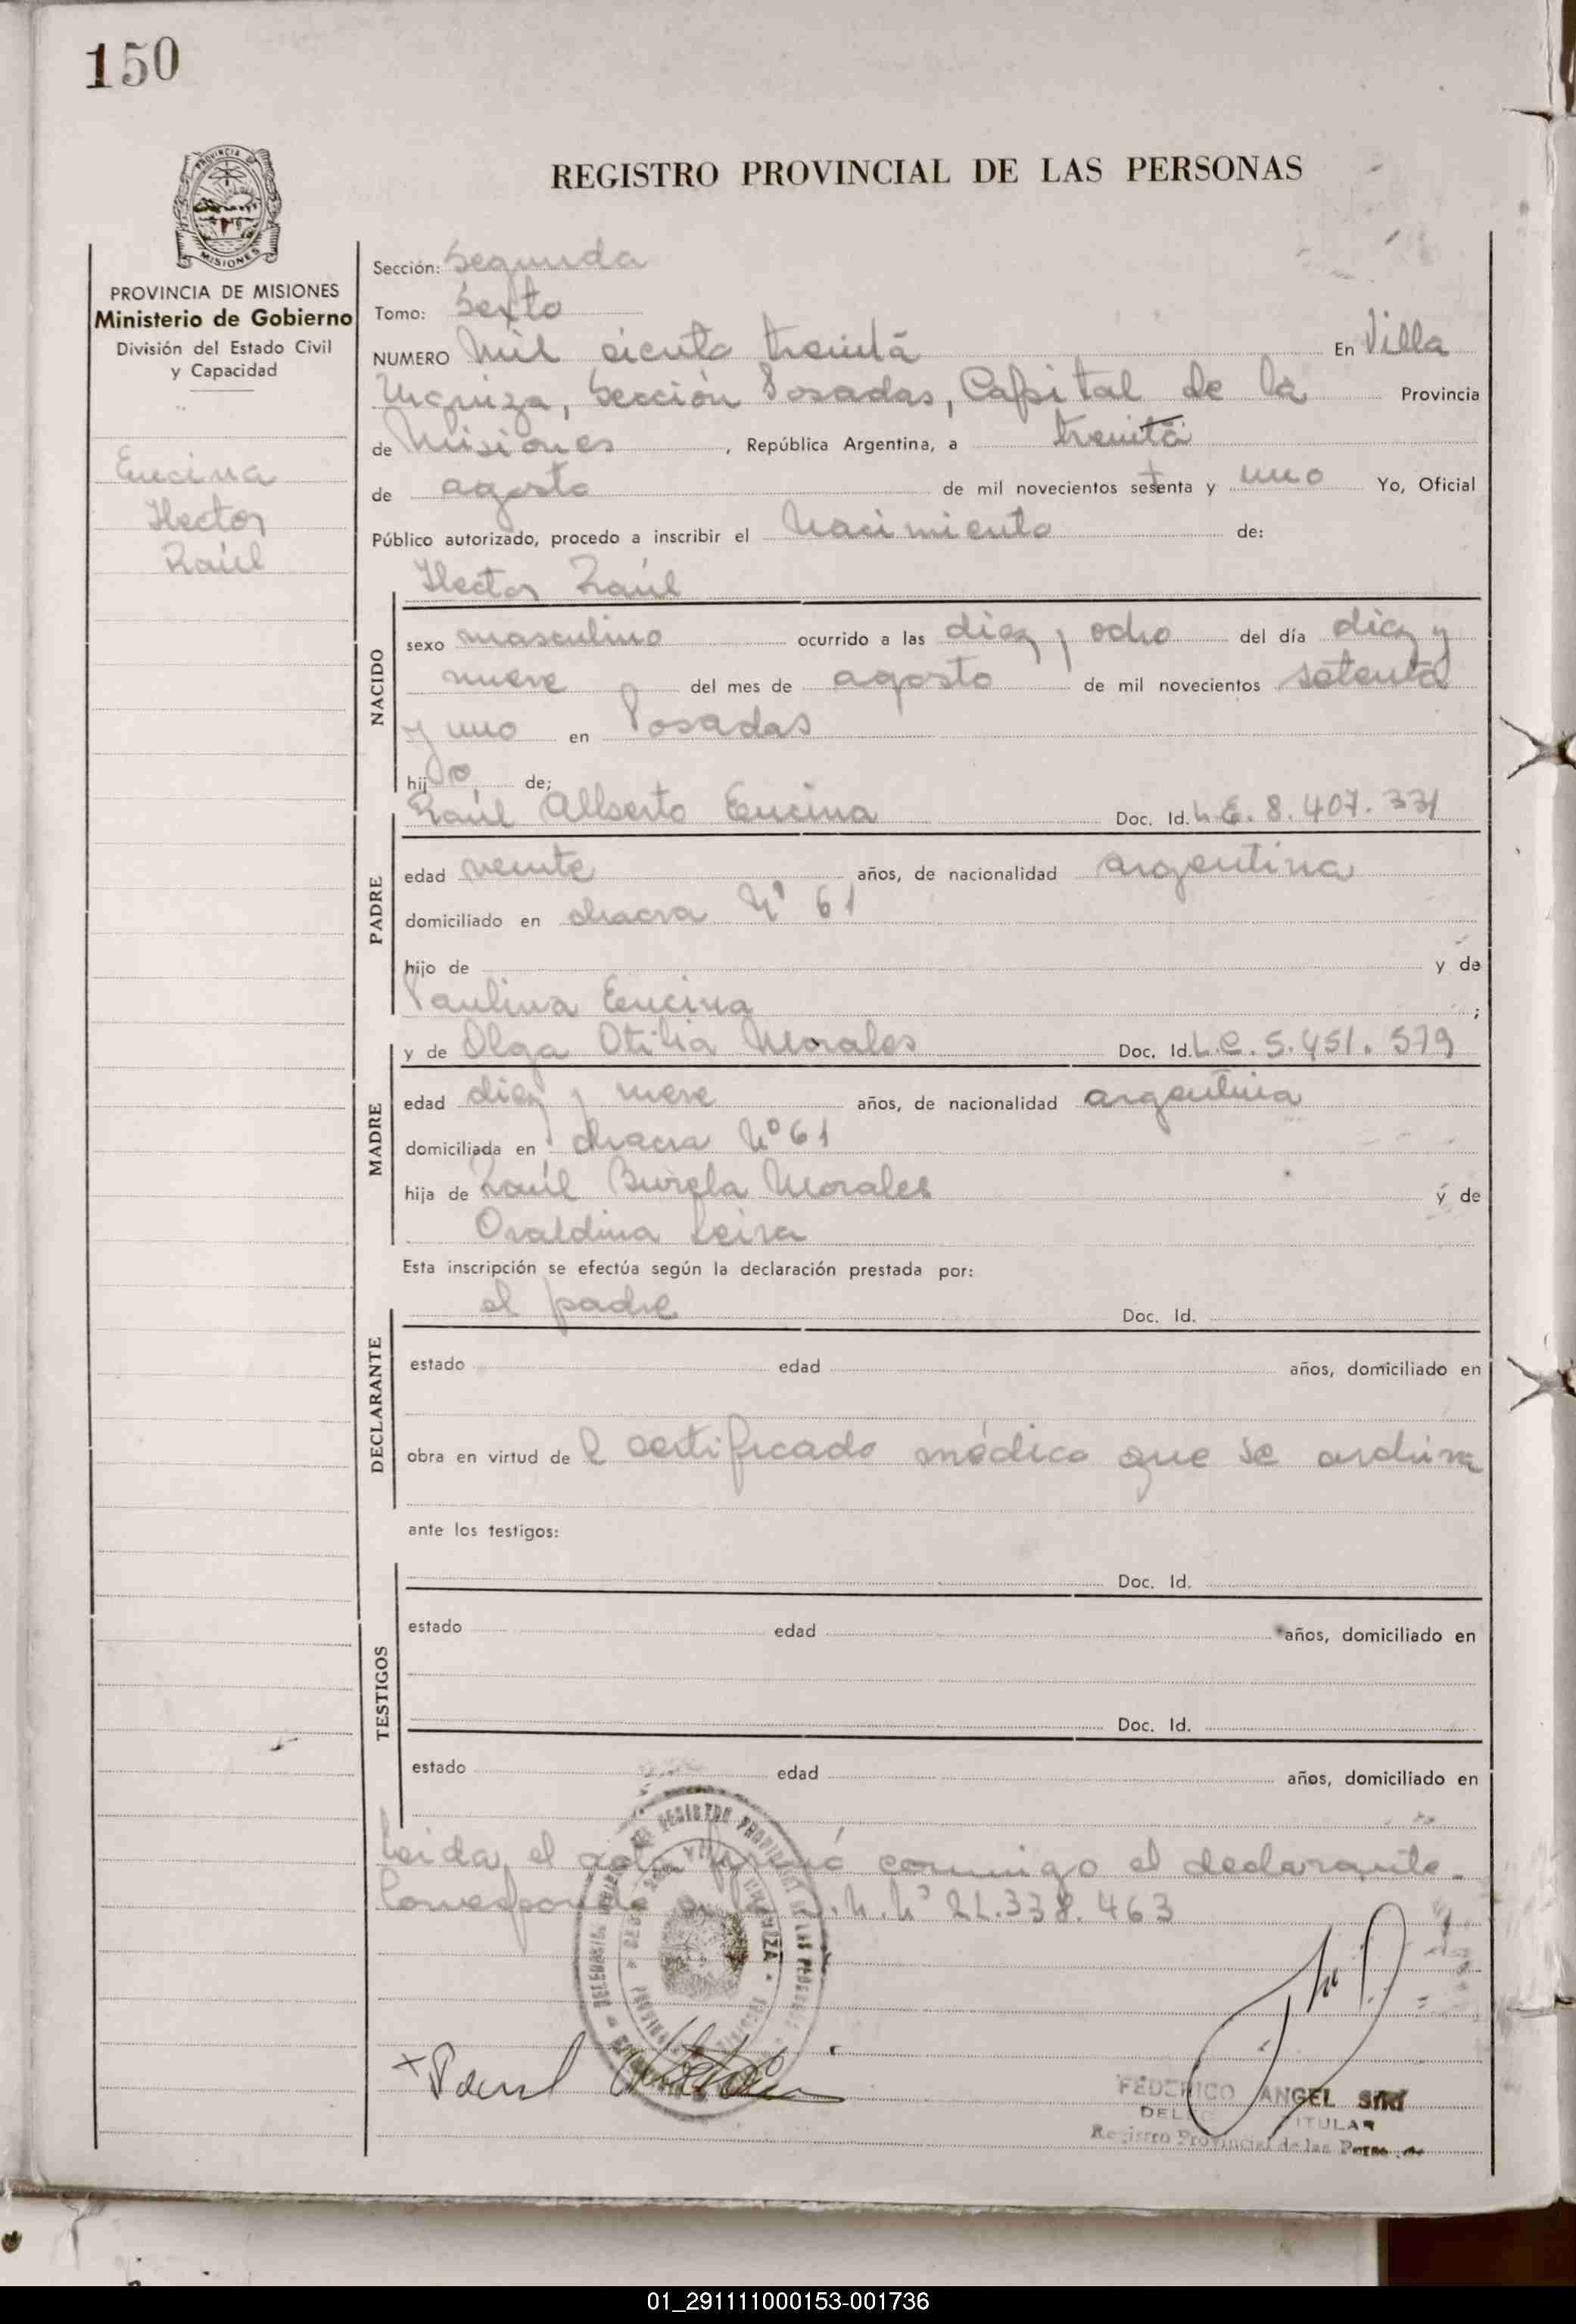 150
PROVINCIA DE
MISIONES
REGISTRO PROVINCIAL DE LAS PERSONAS
PROVINCIA DE MISIONES
Ministerio de Gobierno
División del Estado Civil
y Capacidad
Encina
Hector
Raúl
Sección: Segunda
Tomo: Sexto
NUMERO Mil ciento treinta En Villa
Urquiza, Sección Posadas, Capital de la Provincia
de Misiones, República Argentina, a treinta
de agosto de mil novecientos setenta y uno Yo, Oficial
Público autorizado, procedo a inscribir el Nacimiento de:
Hector Raúl
NACIDO
sexo masculino ocurrido a las diez y ocho del día diez y
nueve del mes de agosto de mil novecientos setenta
y uno en Posadas
hijo de;
PADRE
Raúl Alberto Encina Doc. Id. L.E. 8.407.331
edad veinte años, de nacionalidad argentina
domiciliado en chacra Nº 61
hijo de y de
Paulina Encina ;
MADRE
y de Olga Otilia Morales Doc. Id. L.C. 5.451.579
edad diez y nueve años, de nacionalidad argentina
domiciliada en chacra Nº 61
hija de Raúl Morales y de
Leira
Esta inscripción se efectúa según la declaración prestada por:
DECLARANTE
el padre Doc. Id.
estado edad años, domiciliado en
obra en virtud de l certificado médico que se archiva
ante los testigos:
TESTIGOS
Doc. Id.
estado edad años, domiciliado en
Doc. Id.
estado edad años, domiciliado en
Leida el acta firmó conmigo el declarante.
Corresponde N. Nº 22.338.463
FEDERICO ANGEL
TITULAR
Registro Provincial de las
01_291111000153-001736